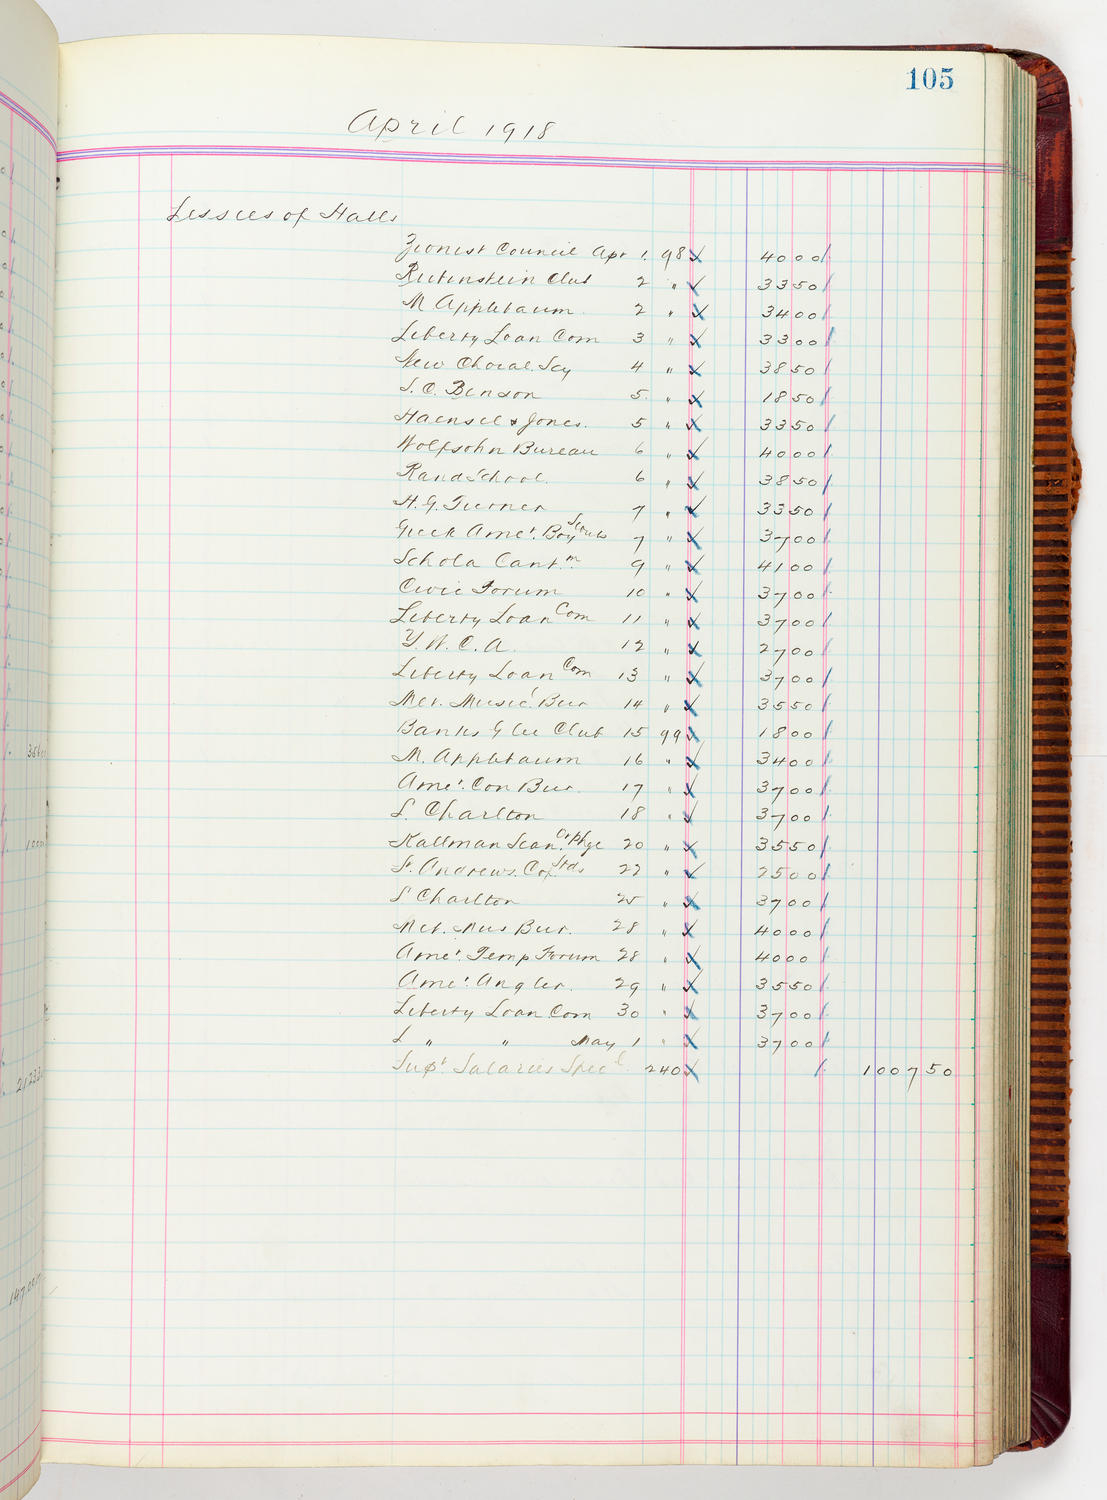 105
April 1918
Lessees of Halls
Zionist Council Apr 1. 98 4000
Rubinstein Club 2 " 3350
M Applebaum 2 " 3400
Liberty Loan Com 3 " 3300
New Choral Socy 4 " 3850
S. C. Benson 5. " 1850
Haensel & Jones. 5 " 3350
Wolfsohn Bureau 6 " 4000
Rand School. 6 " 3850
H. G. Turner 7 " 3350
Greek Amer. Boy Scouts 7 " 3700
Schola Cantm. 9 " 4100
Civic Forum 10 " 3700
Liberty Loan Com 11 " 3700
Y. W. C. A. 12 " 2700
Liberty Loan Com 13 " 3700
Met. Musicl Bur 14 " 3550
Banks Glee Club 15 99 1800
M. Applebaum 16 " 3400
Amer. Con Bur. 17 " 3700
L. Charlton 18 " 3700
Kallman Scan. Orphge 20 " 3550
F. Andrews. Co 22 " 2500
L Charlton 25 " 3700
Met. Mus Bur. 28 " 4000
Amer. Temp Forum 28 " 4000
Amer. Angler. 29 " 3550
Liberty Loan Com 30 " 3700
L " " May 1 " 3700
Supt Salaries Specl 240 100750